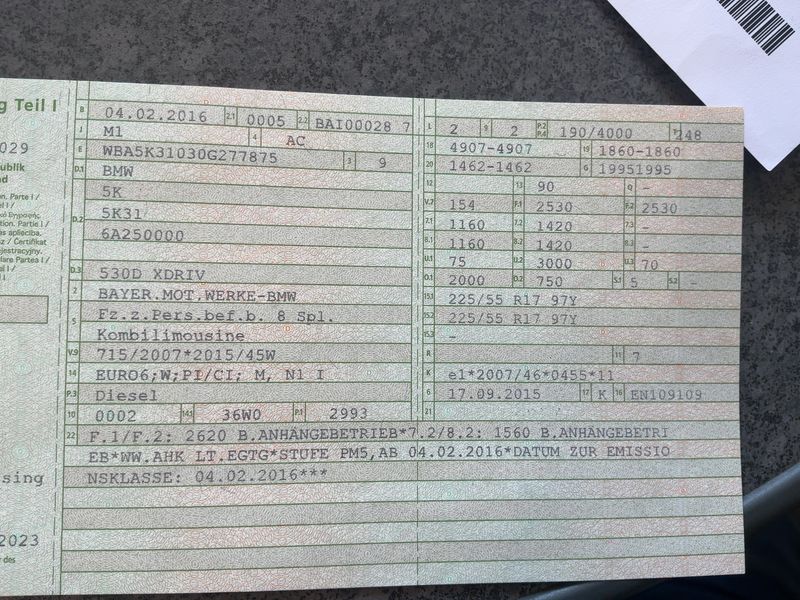 g Teil I
029
publik
nd
B 04.02.2016 2.1 0005 2.2 BAI00028 7
J M1 4 AC
E WBA5K31030G277875 3 9
D.1 BMW
D.2 5K
5K31
6A250000
D.3 530D XDRIV
2 BAYER.MOT.WERKE-BMW
5 Fz.z.Pers.bef.b. 8 Spl.
Kombilimousine
V.9 715/2007*2015/45W
14 EURO6;W;PI/CI; M, N1 I
P.3 Diesel
10 0002 14.1 36W0 P.1 2993
L 2 9 2 P.2 P.4 190/4000 T 248
18 4907-4907 19 1860-1860
20 1462-1462 G 19951995
12 13 90 Q -
V.7 154 F.1 2530 F.2 2530
7.1 1160 7.2 1420 7.3 -
8.1 1160 8.2 1420 8.3 -
U.1 75 U.2 3000 U.3 70
O.1 2000 O.2 750 S.1 5 S.2 -
15.1 225/55 R17 97Y
15.2 225/55 R17 97Y
15.3 -
R 11 7
K e1*2007/46*0455*11
6 17.09.2015 17 K 16 EN109109
21
22 F.1/F.2: 2620 B.ANHÄNGEBETRIEB*7.2/8.2: 1560 B.ANHÄNGEBETRI
EB*WW.AHK LT.EGTG*STUFE PM5,AB 04.02.2016*DATUM ZUR EMISSIO
NSKLASSE: 04.02.2016***
sing
2023